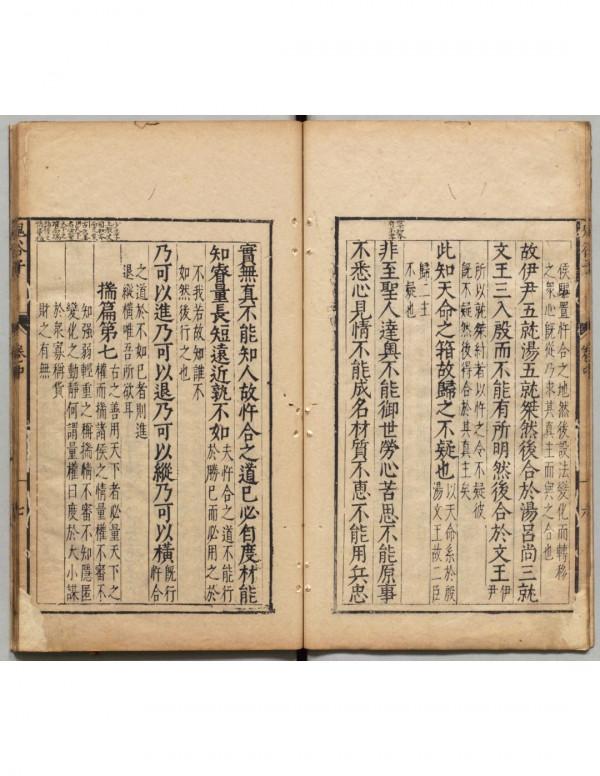 侯舉置忤合之地然後設法變化而轉移
之衆心既從乃求其真主而與之合也
故伊尹五就湯五就桀然後合於湯呂尚三就
文王三入殷而不能有所明然後合於文王伊
尹
所以就桀紂者以忤之令不疑彼
既不疑然後得合於其真主矣
此知天命之箝故歸之不疑也以天命系於殷
湯文王故二臣
歸二主
不疑也
非至聖人達奧不能御世勞心苦思不能原事
不悉心見情不能成名材質不恵不能用兵忠
實無真不能知人故忤合之道已必自度材能
知睿量長短遠近孰不如夫忤合之道不能行
於勝已而必用之於
不我若故知誰不
如然後行之也
乃可以進乃可以退乃可以縱乃可以橫既行
忤合
之道於不如已者則進
退縱橫唯吾所欲耳
揣篇第七古之善用天下者必量天下之
權而揣諸侯之情量權不審不
知強弱輕重之稱揣情不審不知隱匿
變化之動靜何謂量權曰度於大小謀
於衆寡稱貨
財之有無
鬼谷子
卷中
十七